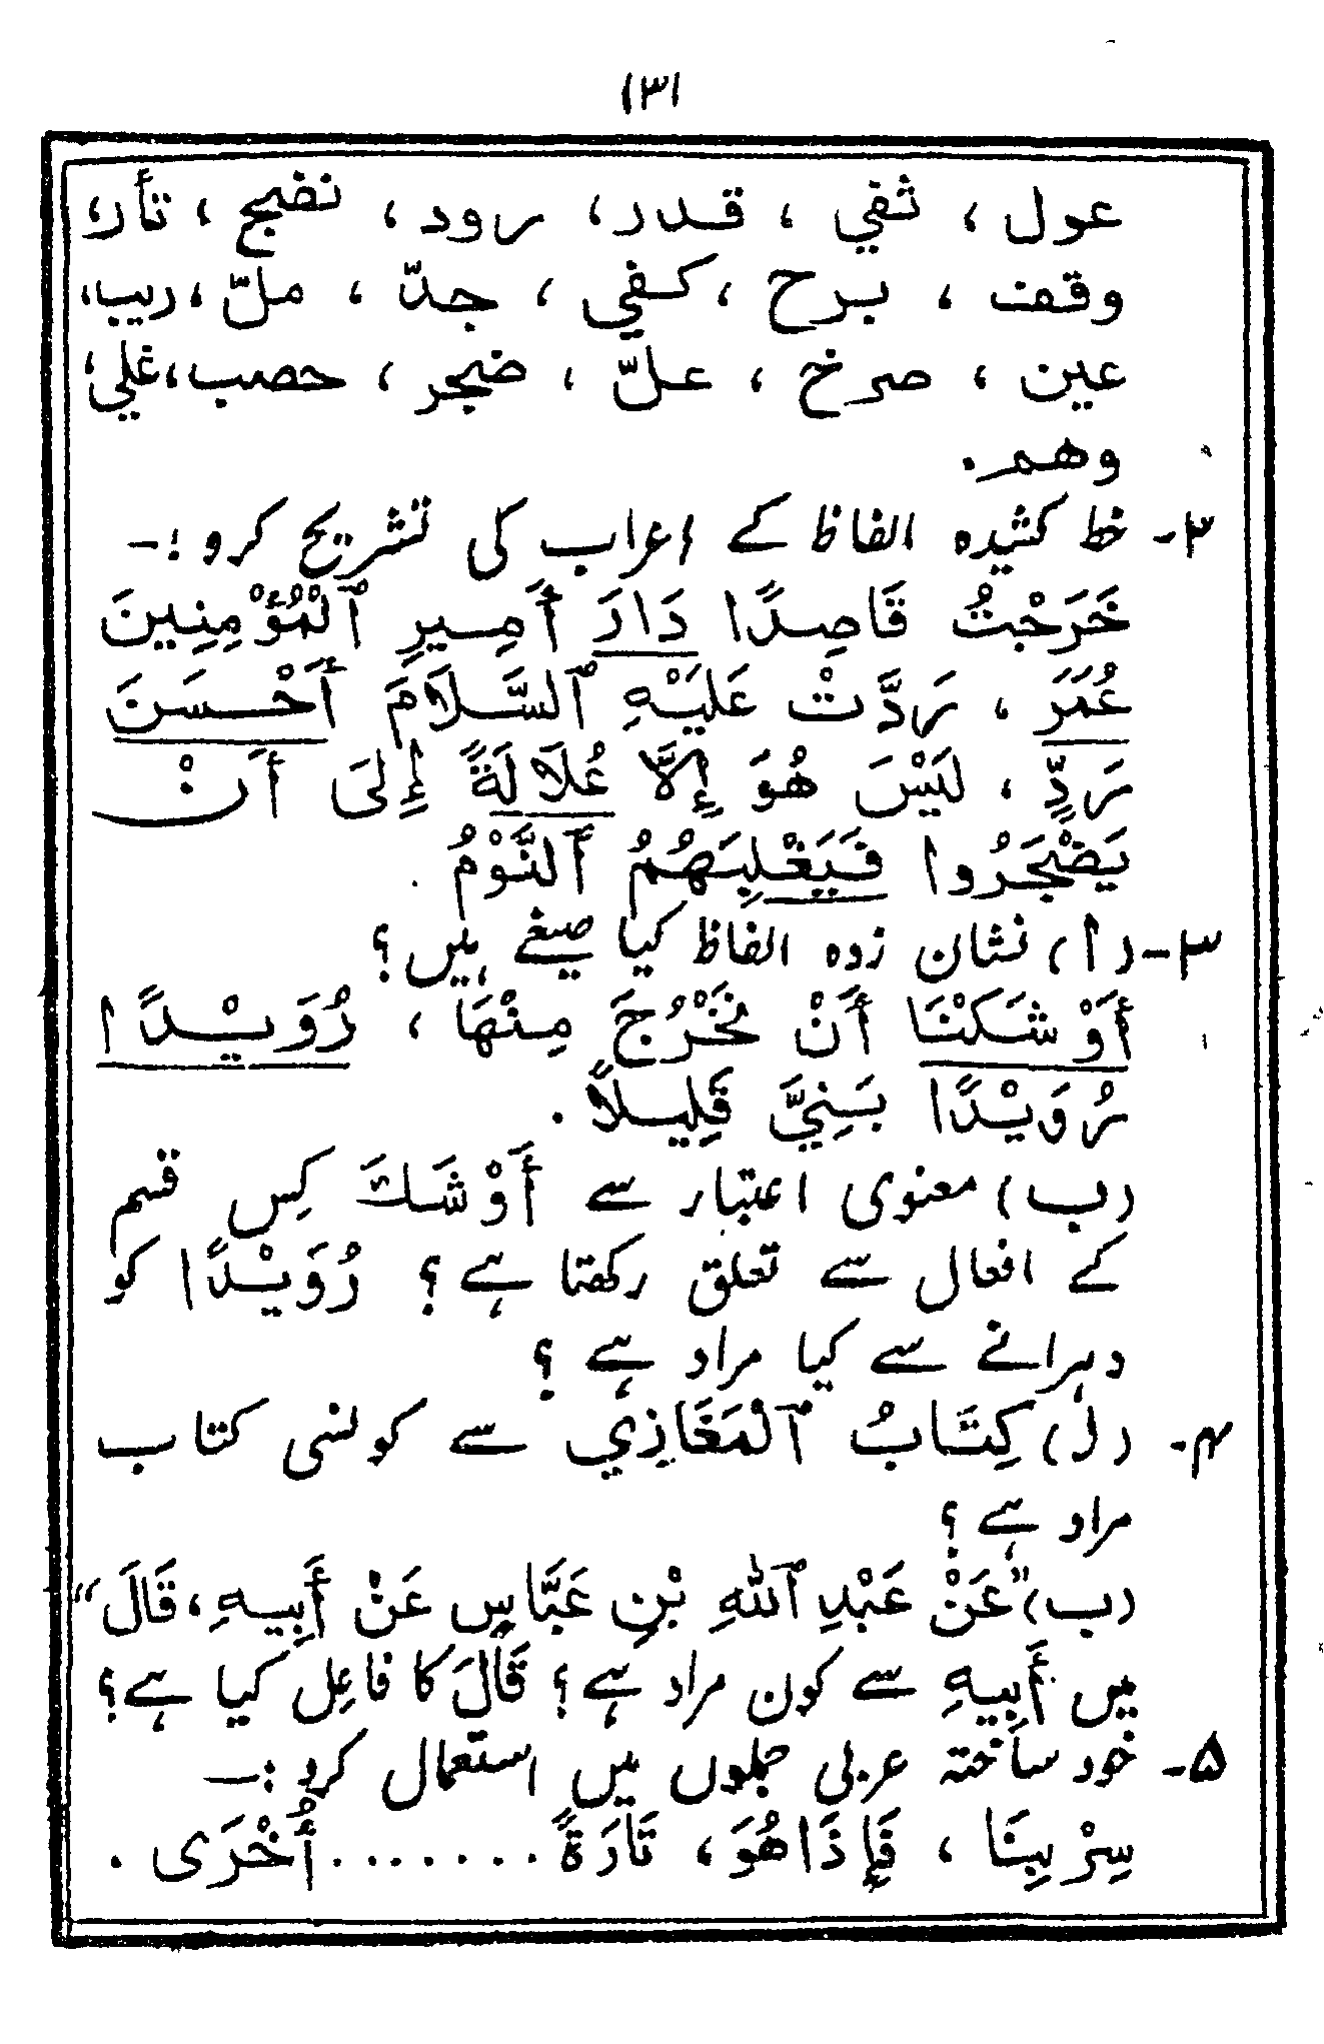 ۱۳۱
عول ، ثفي ، قدر ، رود ، نضج ، تأر ،
وقف ، برح ، كفي ، جدّ ، ملّ ، ريب ،
عين ، صرخ ، علّ ، ضجر ، حصب ، غلي ،
وهم .
۲- خط کشیدہ الفاظ کے اعراب کی تشریح کرو :-
خَرَجْتُ قَاصِدًا دَارَ أَمِيرِ ٱلْمُؤْمِنِينَ
عُمَرَ ، رَدَّتْ عَلَيْهِ ٱلسَّلَامَ أَحْسَنَ
رَدٍّ ، لَيْسَ هُوَ إِلَّا عُلَالَةً إِلَى أَنْ
يَضْجَرُوا فَيَغْلِبَهُمُ ٱلنَّوْمُ .
۳- (أ) نشان زدہ الفاظ کیا صیغے ہیں ؟
أَوْشَكْنَا أَنْ نَخْرُجَ مِنْهَا ، رُوَيْدًا
رُوَيْدًا بَنِيَّ قَلِيلًا .
(ب) معنوی اعتبار سے أَوْشَكَ کِس قسم
کے افعال سے تعلق رکھتا ہے ؟ رُوَيْدًا کو
دہرانے سے کیا مراد ہے ؟
۴- (ل) كِتَابُ ٱلْمَغَازِي سے کونسی کتاب
مراد ہے ؟
(ب) "عَنْ عَبْدِ ٱللهِ بْنِ عَبَّاسٍ عَنْ أَبِيهِ ، قَالَ"
میں أَبِيهِ سے کون مراد ہے ؟ قَالَ کا فاعِل کیا ہے ؟
۵- خود ساختہ عربی جملوں میں استعمال کرو :-
سِرْ بِنَا ، فَإِذَا هُوَ ، تَارَةً ....... أُخْرَى .